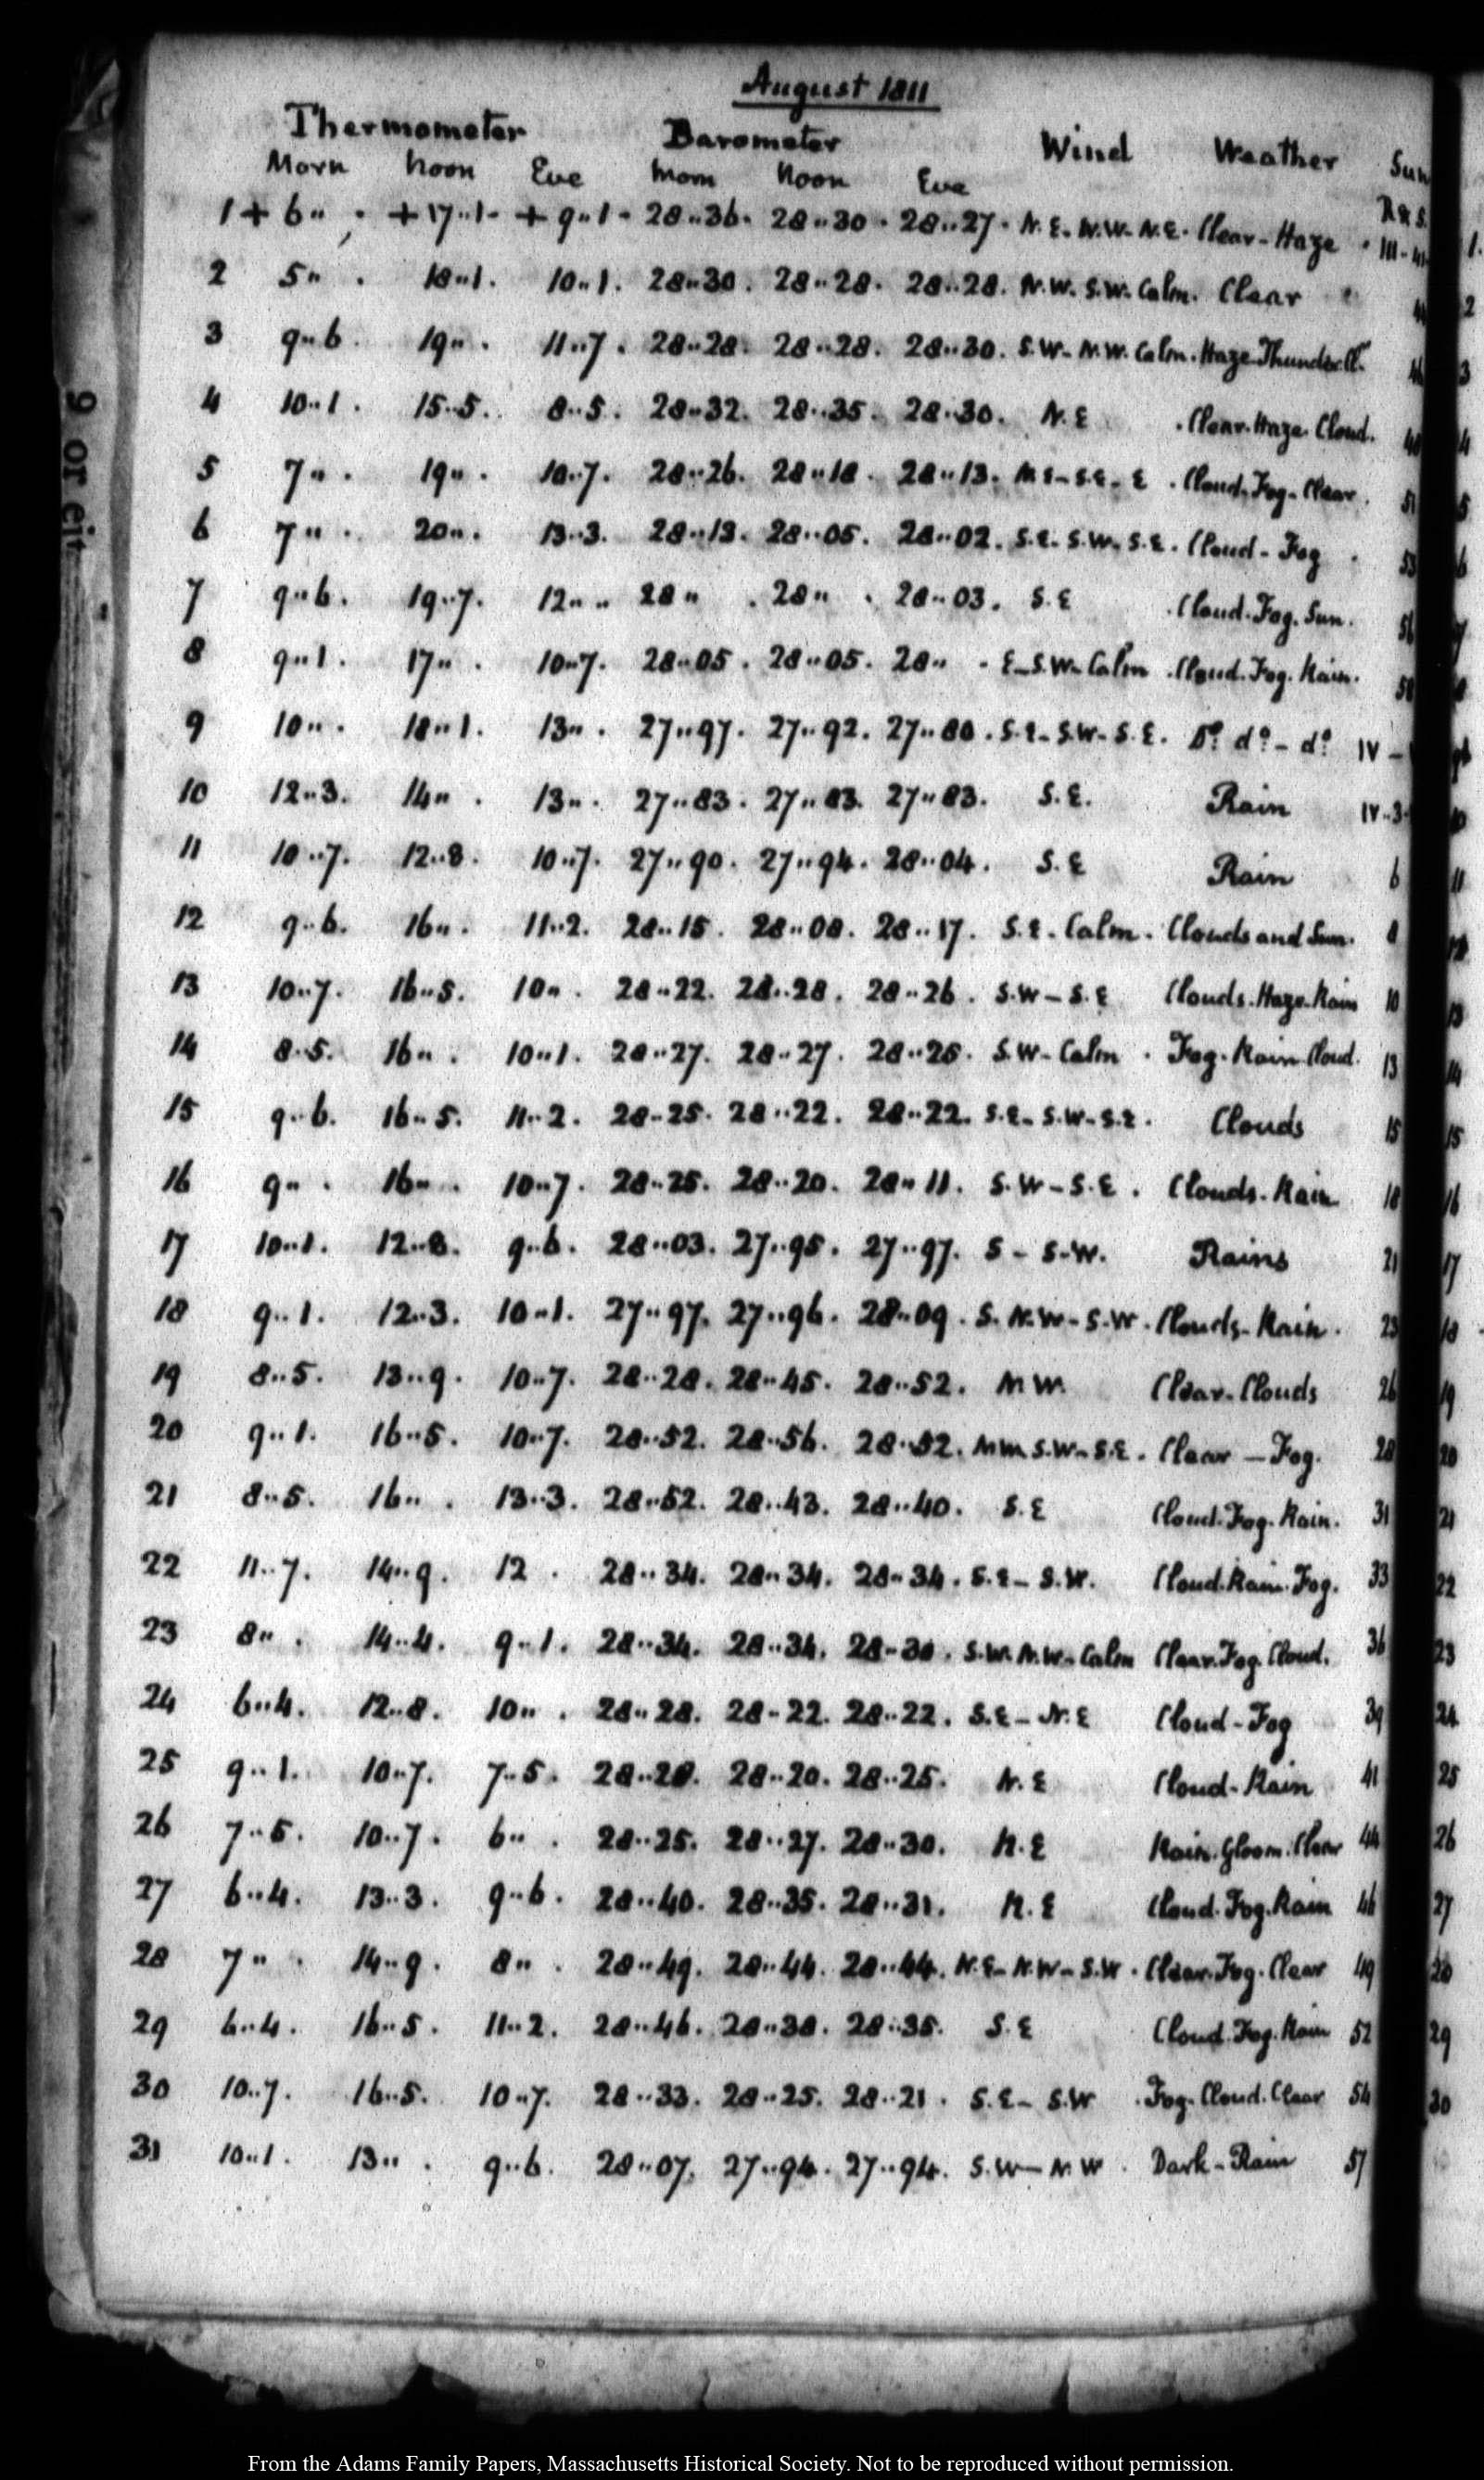 August 1811
Thermometer Barometer Wind Weather Sun
Morn Noon Eve Morn Noon Eve R & S.
1 + 6 " . + 17 " 1 - + 9 " 1 - 28 " 36 - 28 " 30 . 28 " 27 . N.E. N.W. N.E. Clear - Haze . III - 41
2 5 " . 18 " 1 . 10 " 1 . 28 " 30 . 28 " 28 . 28 " 28 . N.W. S.W. Calm . Clear
3 9 " 6 . 19 " . 11 " 7 . 28 " 28 . 28 " 28 . 28 " 30 . S.W. N.W. Calm . Haze Thunder Cl.
4 10 " 1 . 15 " 5 . 8 " 5 . 28 " 32 . 28 " 35 . 28 " 30 . N.E . Clear . Haze . Cloud .
5 7 " . 19 " . 10 " 7 . 28 " 26 . 28 " 18 . 28 " 13 . N E - S.E. E . Cloud . Fog - Clear . 51
6 7 " . 20 " . 13 " 3 . 28 " 13 . 28 " 05 . 28 " 02 . S.E. S.W. S.E. Cloud - Fog . 53
7 9 " 6 . 19 " 7 . 12 " . 28 " . 28 " . 28 " 03 . S.E . Cloud . Fog . Sun . 56
8 9 " 1 . 17 " . 10 " 7 . 28 " 05 . 28 " 05 . 28 " . E - S.W - Calm . Cloud . Fog . Rain . 58
9 10 " . 18 " 1 . 13 " . 27 " 97 . 27 " 92 . 27 " 80 . S.E - S.W - S.E. Do do - do IV -
10 12 " 3 . 14 " . 13 " . 27 " 83 . 27 " 83 . 27 " 83 . S.E. Rain IV - 3
11 10 " 7 . 12 " 8 . 10 " 7 . 27 " 90 . 27 " 94 . 28 " 04 . S.E Rain 6
12 9 " 6 . 16 " . 11 " 2 . 28 " 15 . 28 " 08 . 28 " 17 . S.E. Calm . Clouds and Sun . 8
13 10 " 7 . 16 " 5 . 10 " . 28 " 22 . 28 " 28 . 28 " 26 . S.W - S.E Clouds . Haze . Rain 10
14 8 " 5 . 16 " . 10 " 1 . 28 " 27 . 28 " 27 . 28 " 25 . S.W - Calm . Fog . Rain Cloud . 13
15 9 " 6 . 16 " 5 . 11 " 2 . 28 - 25 . 28 " 22 . 28 " 22 . S.E - S.W - S.E. Clouds 15
16 9 " . 16 " . 10 " 7 . 28 " 25 . 28 " 20 . 28 " 11 . S.W - S.E . Clouds - Rain 18
17 10 " 1 . 12 " 8 . 9 " 6 . 28 " 03 . 27 " 95 . 27 " 97 . S - S.W. Rains 21
18 9 " 1 . 12 " 3 . 10 " 1 . 27 " 97 . 27 " 96 . 28 " 09 . S. N.W - S.W . Clouds - Rain . 23
19 8 " 5 . 13 " 9 . 10 " 7 . 28 " 28 . 28 " 45 . 28 " 52 . N W. Clear - Clouds 26
20 9 " 1 . 16 " 5 . 10 " 7 . 28 " 52 . 28 " 56 . 28 " 52 . NW S.W - S.E . Clear - Fog . 28
21 8 " 5 . 16 " . 13 " 3 . 28 " 52 . 28 " 43 . 28 " 40 . S.E Cloud . Fog . Rain . 31
22 11 " 7 . 14 " 9 . 12 . 28 " 34 . 28 " 34 . 28 " 34 . S.E - S.W. Cloud . Rain . Fog . 33
23 8 " . 14 " 4 . 9 " 1 . 28 " 34 . 28 " 34 . 28 - 30 . S.W. N.W - Calm Clear . Fog . Cloud . 36
24 6 " 4 . 12 " 8 . 10 " . 28 " 28 . 28 - 22 . 28 " 22 . S.E - N.E Cloud - Fog 39
25 9 " 1 . 10 " 7 . 7 " 5 . 28 " 20 . 28 " 20 . 28 " 25 . N.E Cloud - Rain 41
26 7 " 5 . 10 " 7 . 6 " . 28 " 25 . 28 " 27 . 28 " 30 . N.E Rain . Gloom . Clear 44
27 6 " 4 . 13 " 3 . 9 " 6 . 28 " 40 . 28 " 35 . 28 " 31 . N.E Cloud . Fog . Rain 46
28 7 " . 14 " 9 . 8 " . 28 " 49 . 28 " 44 . 28 " 44 . N.E - N.W - S.W . Clear . Fog . Clear 49
29 6 " 4 . 16 " 5 . 11 " 2 . 28 " 46 . 28 " 38 . 28 " 35 . S.E Cloud . Fog . Rain 52
30 10 " 7 . 16 " 5 . 10 " 7 . 28 " 33 . 28 " 25 . 28 " 21 . S.E - S.W . Fog . Cloud . Clear 54
31 10 " 1 . 13 " . 9 " 6 . 28 " 07 . 27 " 94 . 27 " 94 . S.W - N W . Dark - Rain 57
From the Adams Family Papers, Massachusetts Historical Society. Not to be reproduced without permission.